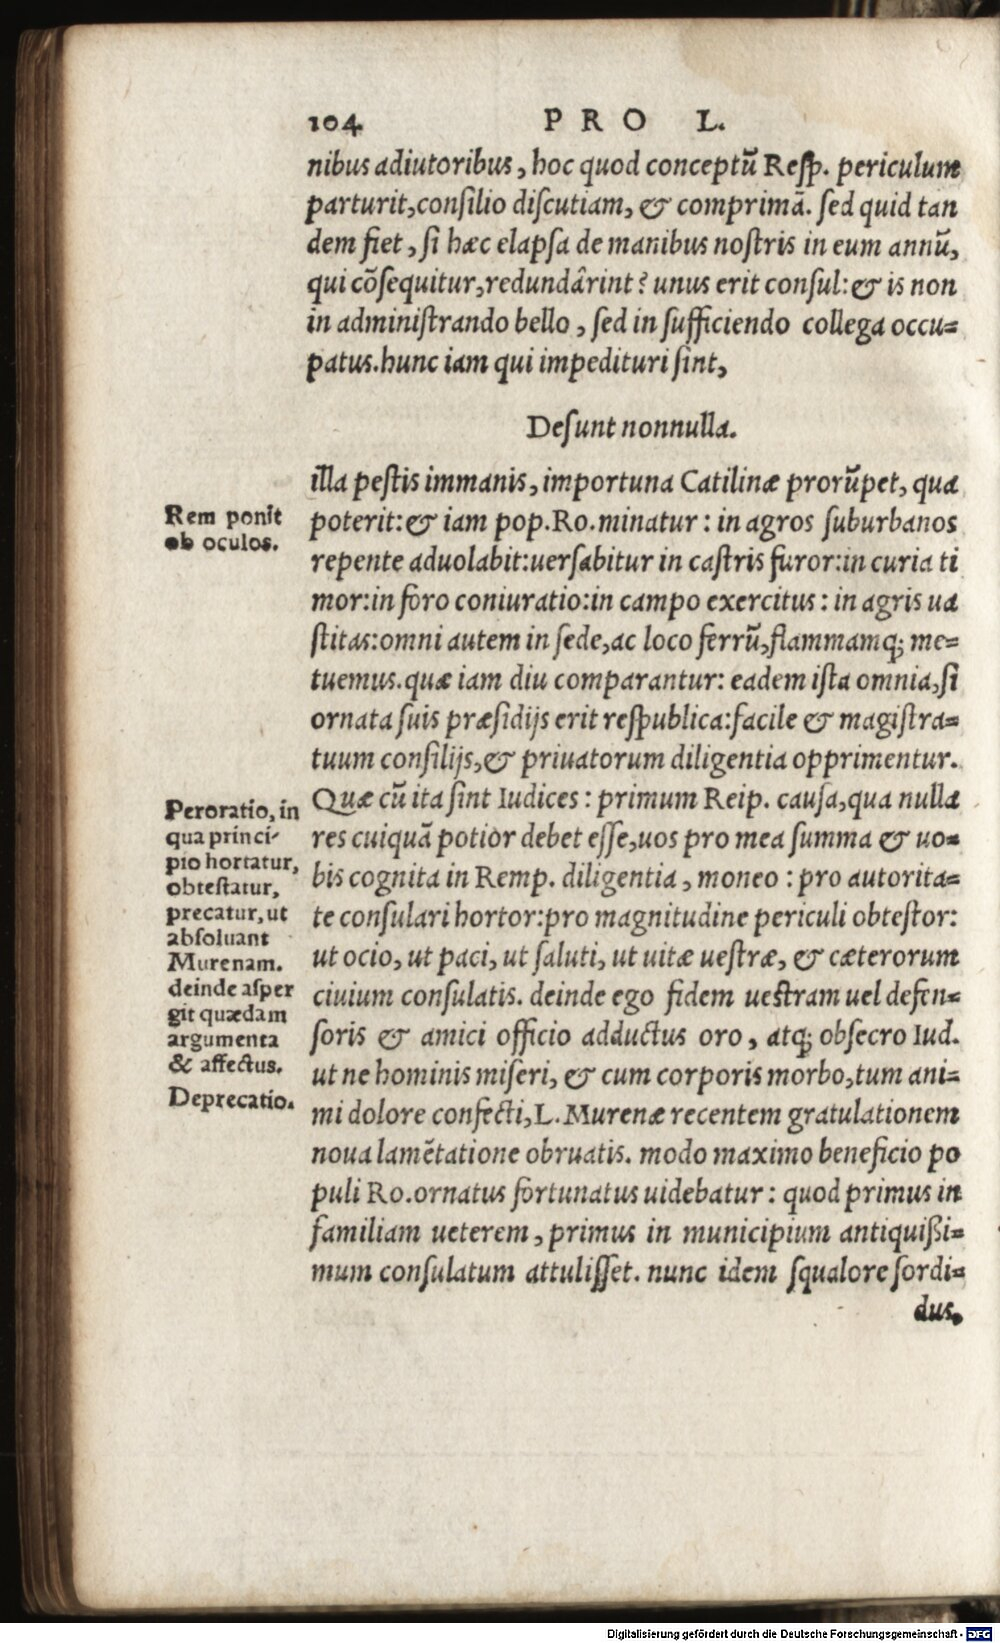 104 PRO L.
nibus adiutoribus, hoc quod conceptū Resp. periculum
parturit, consilio discutiam, & comprimā. sed quid tan
dem fiet, si hæc elapsa de manibus nostris in eum annū,
qui cōsequitur, redundârint? unus erit consul: & is non
in administrando bello, sed in sufficiendo collega occu=
patus. hunc iam qui impedituri sint,
Desunt nonnulla.
illa pestis immanis, importuna Catilinæ prorūpet, qua
poterit: & iam pop. Ro. minatur: in agros suburbanos
repente aduolabit: uersabitur in castris furor: in curia ti
mor: in foro coniuratio: in campo exercitus: in agris ua
stitas: omni autem in sede, ac loco ferrū, flammamq; me=
tuemus. quæ iam diu comparantur: eadem ista omnia, si
ornata suis præsidijs erit respublica: facile & magistra=
tuum consilijs, & priuatorum diligentia opprimentur.
Quæ cū ita sint Iudices: primum Reip. causa, qua nulla
res cuiquā potior debet esse, uos pro mea summa & uo=
bis cognita in Remp. diligentia, moneo: pro autorita=
te consulari hortor: pro magnitudine periculi obtestor:
ut ocio, ut paci, ut saluti, ut uitæ uestræ, & cæterorum
ciuium consulatis. deinde ego fidem uestram uel defen=
soris & amici officio adductus oro, atq; obsecro Iud.
ut ne hominis miseri, & cum corporis morbo, tum ani=
mi dolore confecti, L. Murenæ recentem gratulationem
noua lamētatione obruatis. modo maximo beneficio po
puli Ro. ornatus fortunatus uidebatur: quod primus in
familiam ueterem, primus in municipium antiquißi=
mum consulatum attulisset. nunc idem squalore sordi=
dus,
Rem ponit
ob oculos.
Peroratio, in
qua princi-
pio hortatur,
obtestatur,
precatur, ut
absoluant
Murenam.
deinde asper
git quædam
argumenta
& affectus.
Deprecatio.
Digitalisierung gefördert durch die Deutsche Forschungsgemeinschaft - DFG